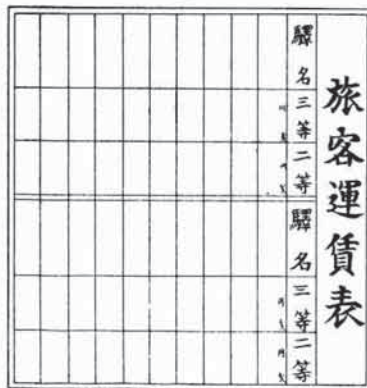 旅客運賃表
驛名
三等
二等
驛名
三等
二等